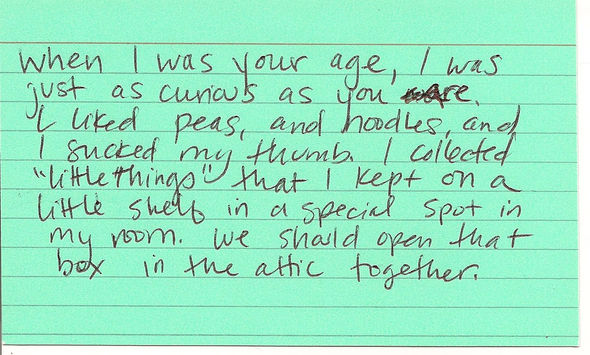 When I was your age, I was
just as curious as you are.
I liked peas, and noodles, and
I sucked my thumb. I collected
"little things" that I kept on a
little shelf in a special spot in
my room. We should open that
box in the attic together.